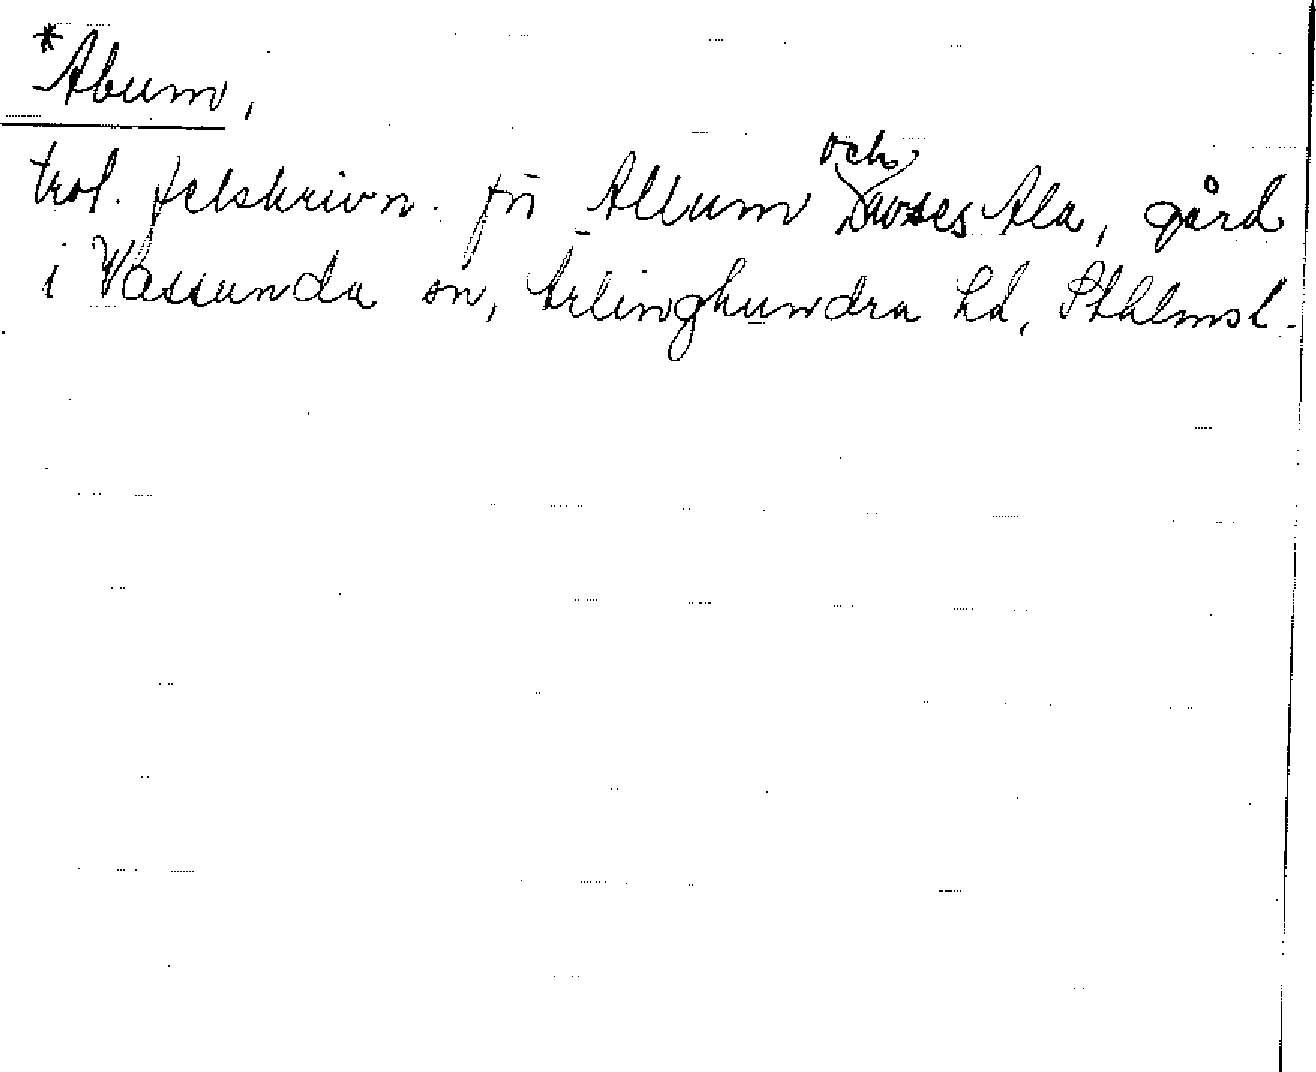 *Abum,
trol. felskrivn. för Allum och avses Ala, gård
i Vassunda sn, Ärlinghundra hd, Sthlms l.